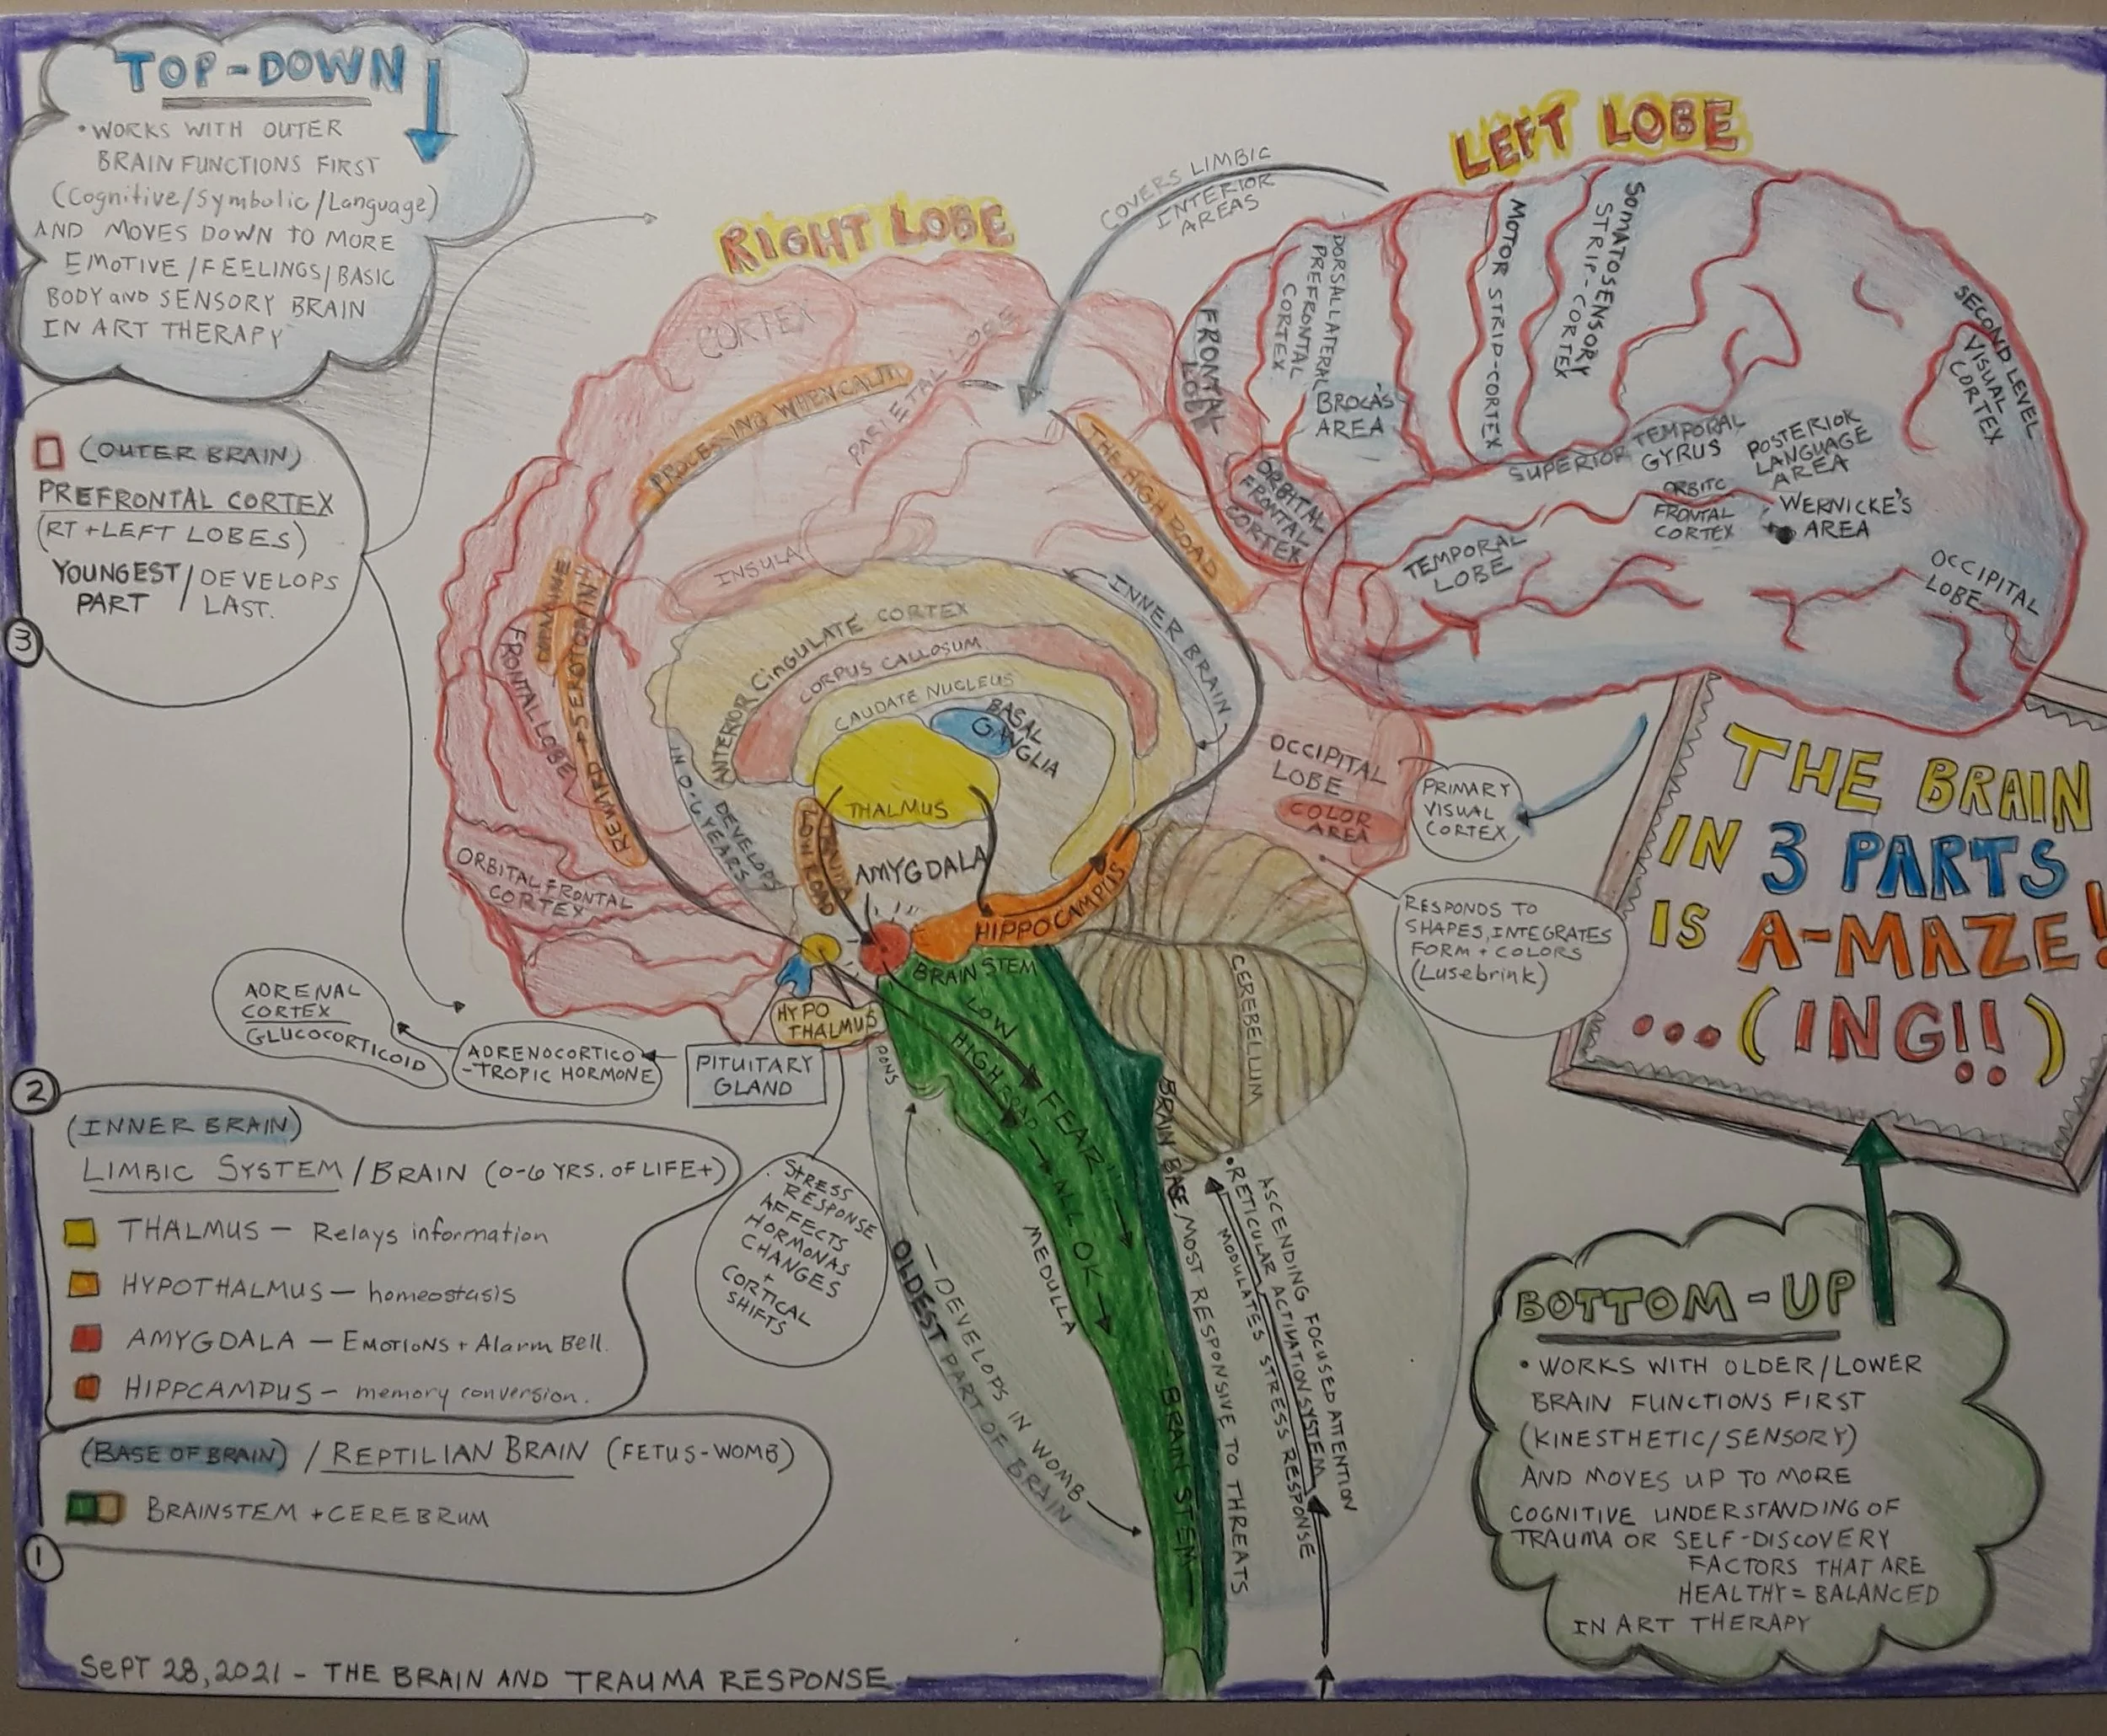 TOP-DOWN
• WORKS WITH OUTER
BRAIN FUNCTIONS FIRST
(Cognitive/Symbolic/Language)
AND MOVES DOWN TO MORE
EMOTIVE/FEELINGS/BASIC
BODY and SENSORY BRAIN
IN ART THERAPY
(OUTER BRAIN)
PREFRONTAL CORTEX
(RT + LEFT LOBES)
YOUNGEST / DEVELOPS
PART LAST.
3
RIGHT LOBE
CORTEX
PARIETAL LOBE
PROCESSING WHEN CALM
THE HIGH ROAD
INSULA
DOPAMINE
REWARD + SEROTONIN
FRONTAL LOBE
ORBITAL FRONTAL
CORTEX
ANTERIOR CINGULATE CORTEX
CORPUS CALLOSUM
CAUDATE NUCLEUS
BASAL
GANGLIA
INNER BRAIN
DEVELOPS
IN 0-6 YEARS
THALMUS
LOW ROAD
AMYGDALA
HIPPOCAMPUS
BRAIN STEM
HYPO
THALMUS
PONS
OCCIPITAL
LOBE
COLOR
AREA
COVERS LIMBIC
INTERIOR
AREAS
LEFT LOBE
FRONTAL
LOBE
DORSALLATERAL
PREFRONTAL
CORTEX
BROCA'S
AREA
MOTOR STRIP-CORTEX
SOMATOSENSORY
STRIP-CORTEX
ORBITAL
FRONTAL
CORTEX
SUPERIOR TEMPORAL
GYRUS
POSTERIOR
LANGUAGE
AREA
ORBITC
FRONTAL
CORTEX
WERNICKE'S
AREA
TEMPORAL
LOBE
SECOND LEVEL
VISUAL
CORTEX
OCCIPITAL
LOBE
PRIMARY
VISUAL
CORTEX
RESPONDS TO
SHAPES, INTEGRATES
FORM + COLORS
(Lusebrink)
THE BRAIN
IN 3 PARTS
IS A-MAZE!
...(ING!!)
ADRENAL
CORTEX
GLUCOCORTICOID
ADRENOCORTICO
-TROPIC HORMONE
PITUITARY
GLAND
STRESS
RESPONSE
AFFECTS
HORMONAS
CHANGES
+
CORTICAL
SHIFTS
2
(INNER BRAIN)
LIMBIC SYSTEM / BRAIN (0-6 YRS. OF LIFE+)
THALMUS — Relays information
HYPOTHALMUS — homeostasis
AMYGDALA — EMOTIONS + Alarm Bell.
HIPPCAMPUS — memory conversion.
(BASE OF BRAIN) / REPTILIAN BRAIN (FETUS-WOMB)
BRAINSTEM + CEREBRUM
1
LOW
FEAR
HIGH ROAD
ALL OK
CEREBELLUM
MEDULLA
— DEVELOPS IN WOMB —
OLDEST PART OF BRAIN
BRAIN BASE / MOST RESPONSIVE TO THREATS
BRAIN STEM
ASCENDING FOCUSED ATTENTION
• RETICULAR ACTIVATION SYSTEM
MODULATES STRESS RESPONSE
BOTTOM-UP
• WORKS WITH OLDER/LOWER
BRAIN FUNCTIONS FIRST
(KINESTHETIC/SENSORY)
AND MOVES UP TO MORE
COGNITIVE UNDERSTANDING OF
TRAUMA OR SELF-DISCOVERY
FACTORS THAT ARE
HEALTHY = BALANCED
IN ART THERAPY
SEPT 28, 2021 - THE BRAIN AND TRAUMA RESPONSE